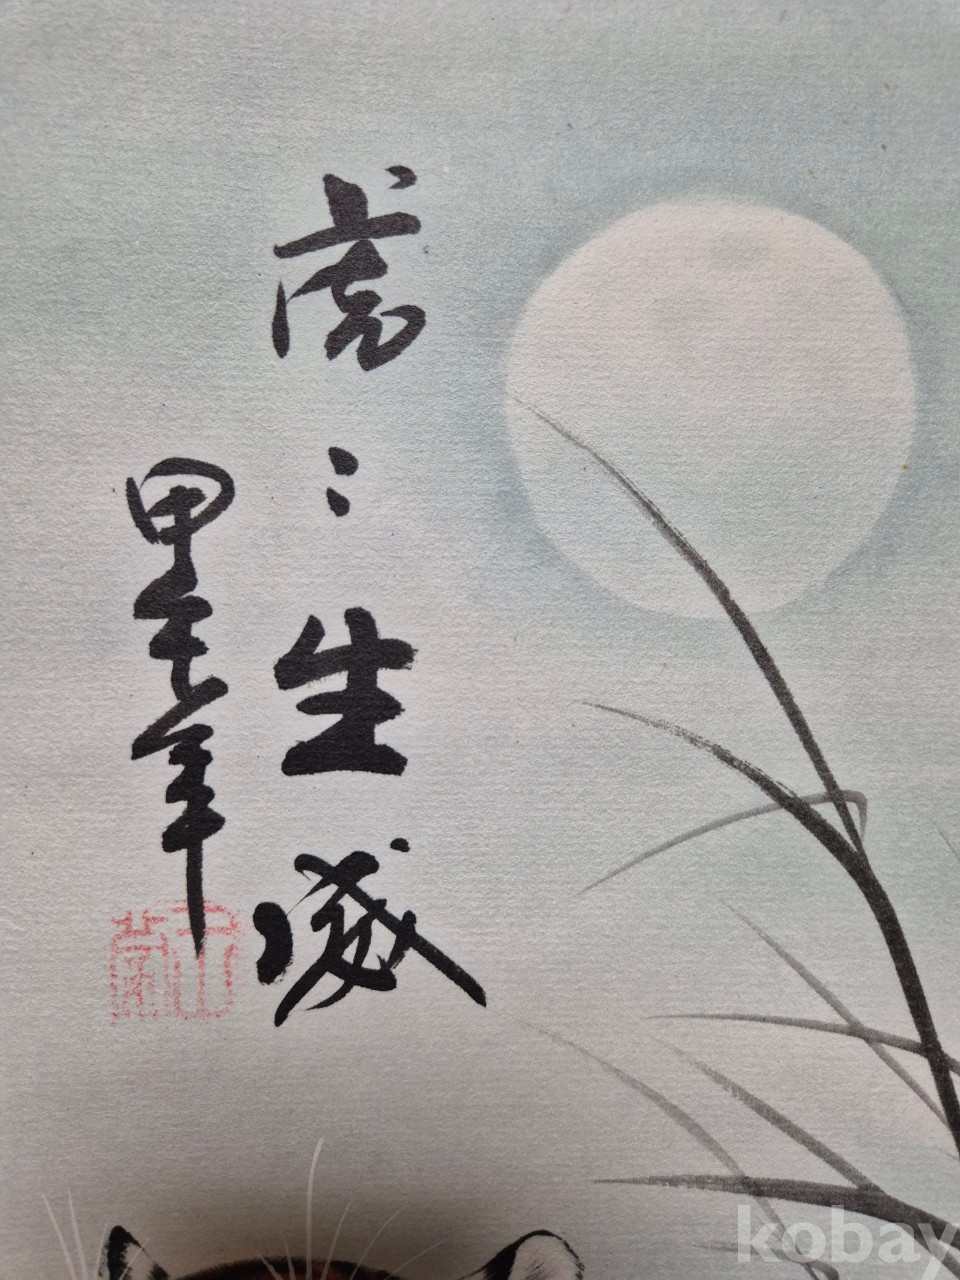 虎〻生威
甲午年
kobay